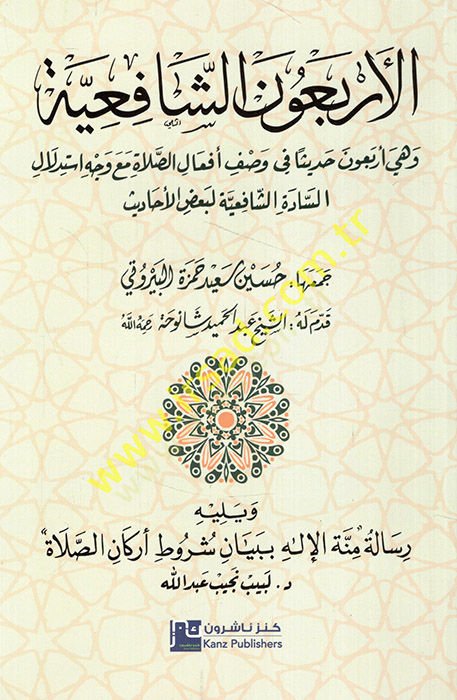 الأربعون الشافعية
وهي أربعون حديثا في وصف أفعال الصلاة مع وجه استدلال
السادة الشافعية لبعض الأحاديث
جمعها: حسين سعيد حمزة البيروتي
قدم له: الشيخ عبد الحميد شانوحة رحمه الله
ويليه
رسالة "منة الإله ببيان شروط أركان الصلاة"
د. لبيب نجيب عبدالله
كنز ناشرون
Kanz Publishers